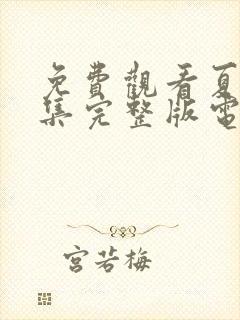 免費觀看夏
集完整版電
宮若梅